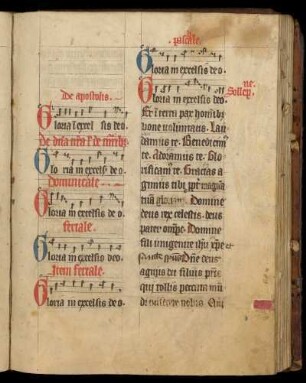 De apostolis.
Gloria in excel sis deo.
Glo ria in excelsis deo.
Dominicale
Gloria in excelsis deo.
feriale.
Gloria in excelsis deo.
Item feriale.
Gloria in excelsis deo.
pascale.
Gloria in excelsis deo.
Gloria in excelsis deo.
Sollep
ne.
Et in terra pax hominib
bone voluntatis. Lau
damus te. Benedicim
te. Adoramus te. Glo
rificam te. Gracias a
gimus tibi ppt magna
gloriam. Domine
deus rex celestis. deus
pater omps. Domine
fili unigenite ihu xpe
Dne deus
agnus dei filius pris
qui tollis peccata mu
di miserere nobis. Qui